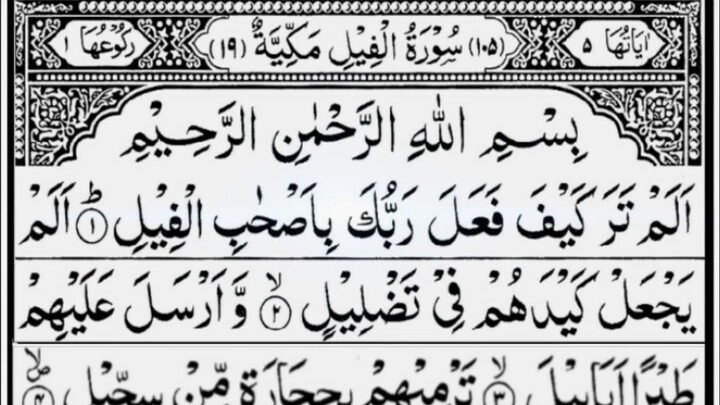 اٰيَاتُهَا ٥ (١٠٥) سُوْرَةُ الْفِيْلِ مَكِّيَّةٌ (١٩) رُكُوْعُهَا ١
بِسْمِ اللهِ الرَّحْمٰنِ الرَّحِيْمِ
اَلَمْ تَرَ كَيْفَ فَعَلَ رَبُّكَ بِاَصْحٰبِ الْفِيْلِ ؕ ١ اَلَمْ
يَجْعَلْ كَيْدَهُمْ فِيْ تَضْلِيْلٍ ۙ ٢ وَّاَرْسَلَ عَلَيْهِمْ
طَيْرًا اَبَابِيْلَ ۙ ٣ تَرْمِيْهِمْ بِحِجَارَةٍ مِّنْ سِجِّيْلٍ ۙ ٤